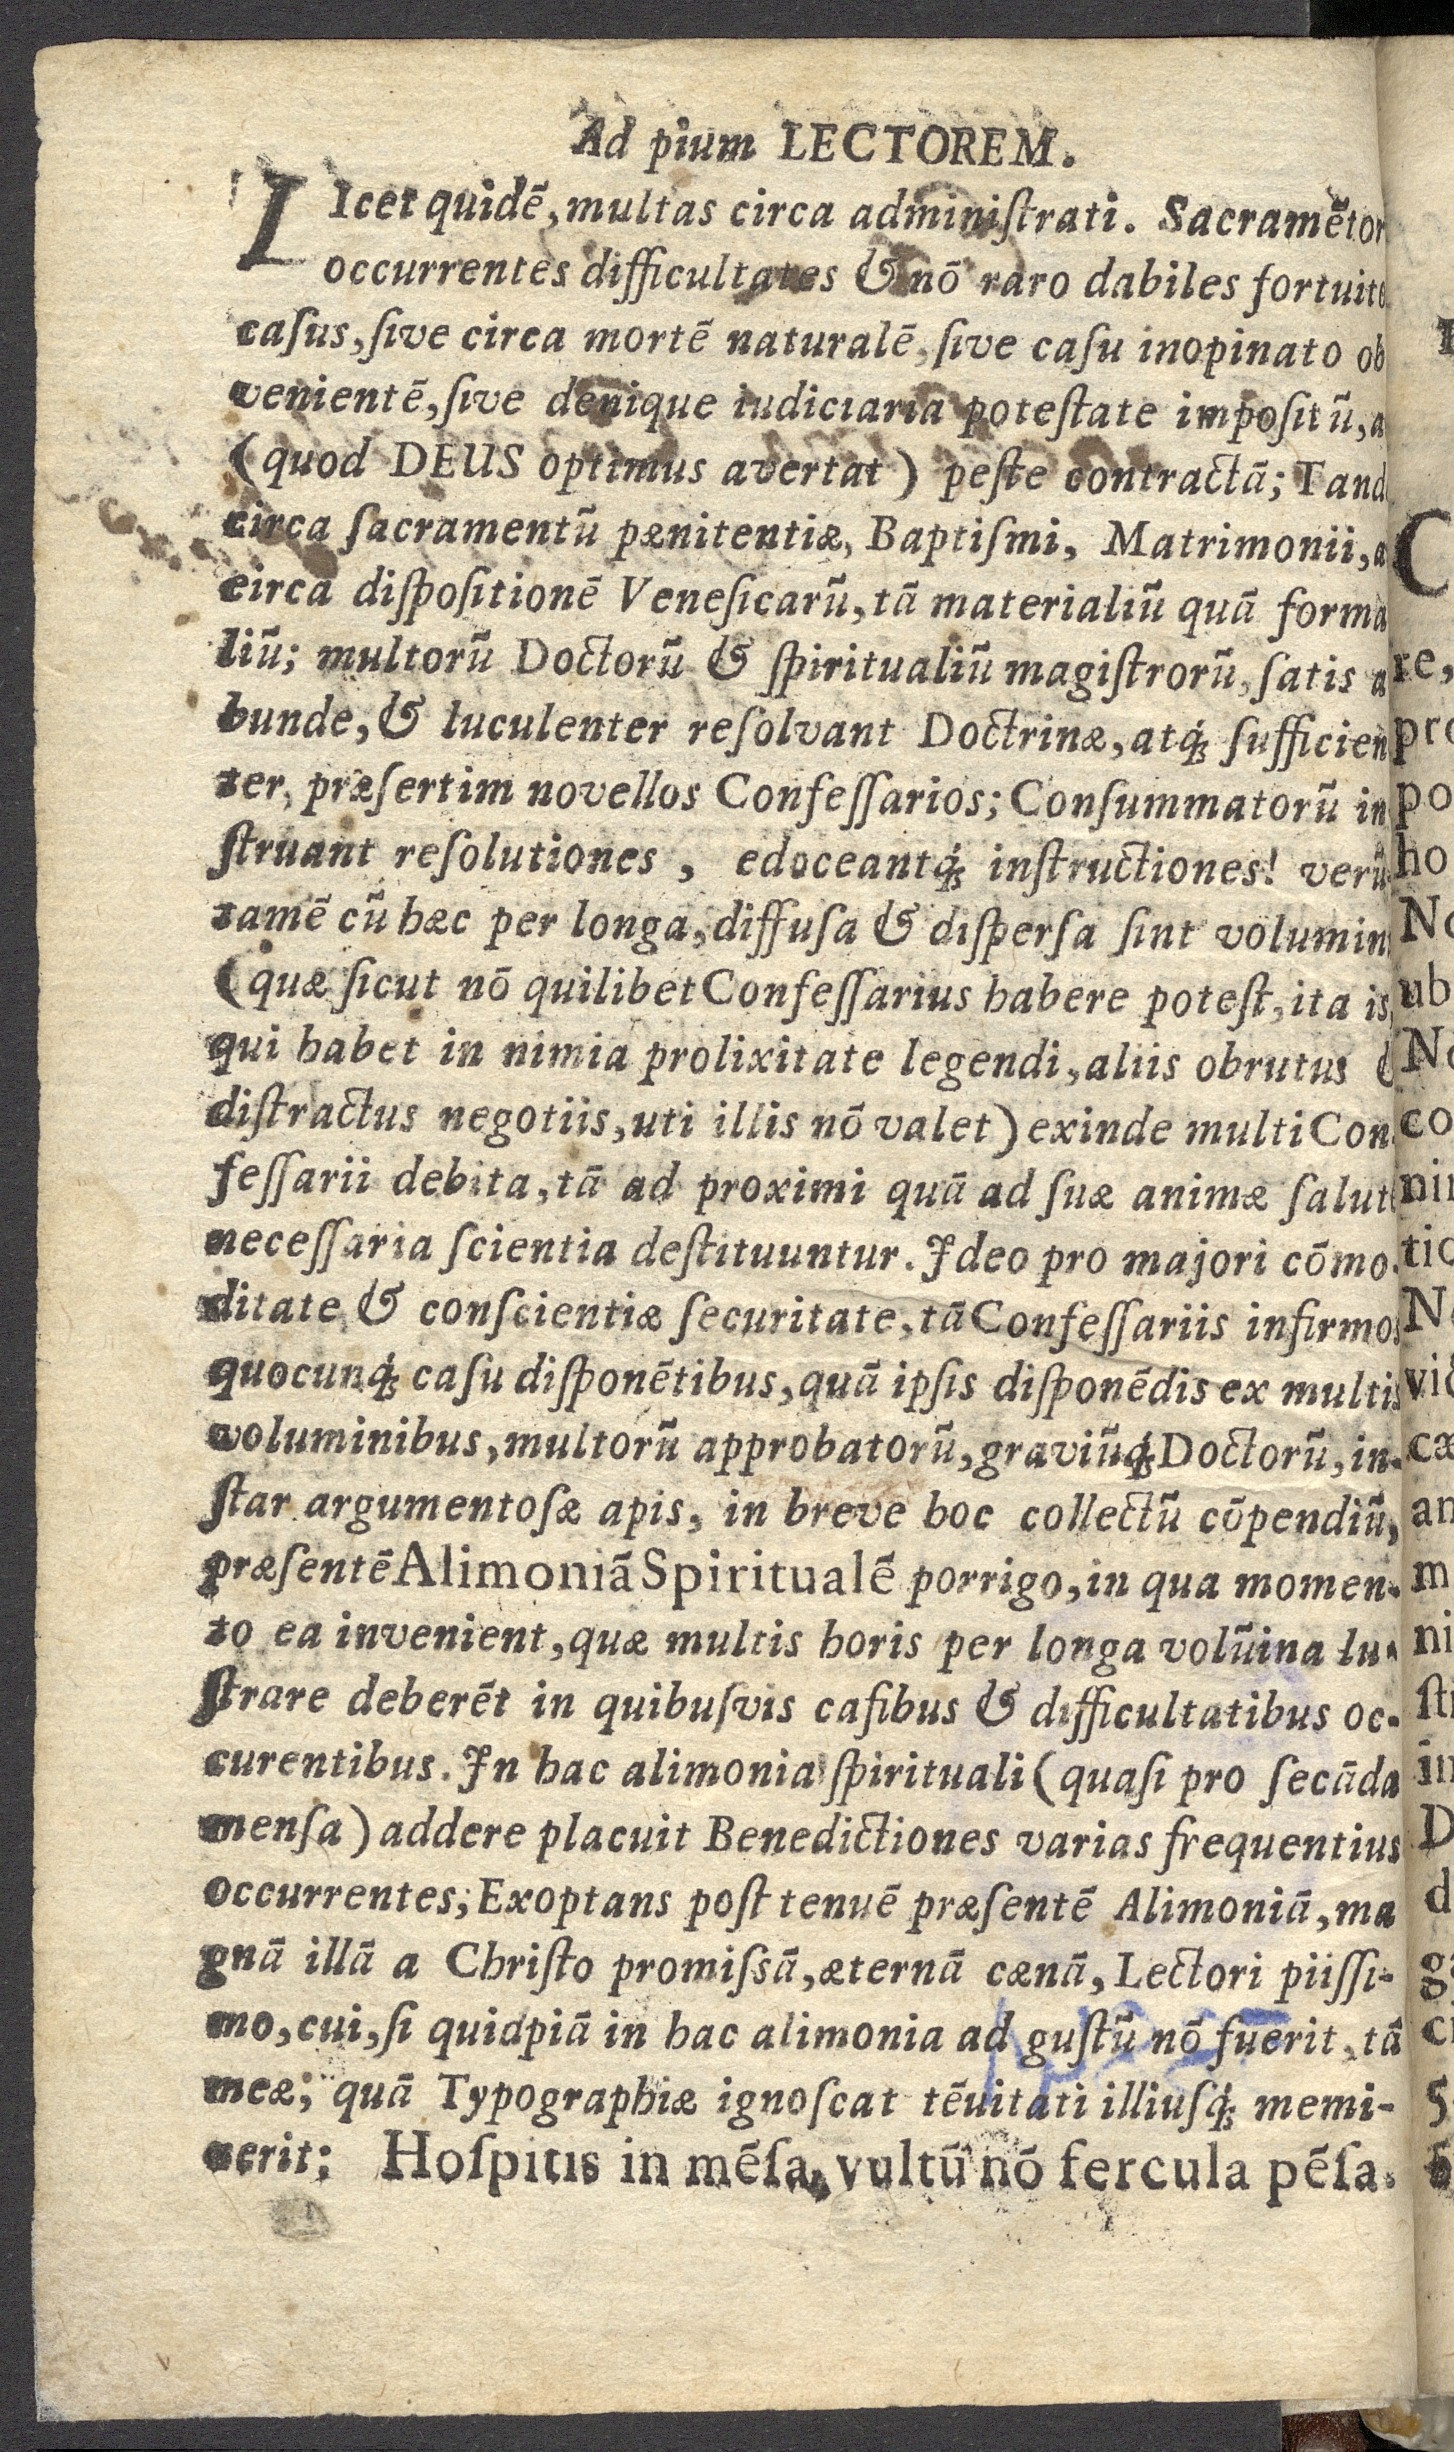 Ad pium LECTOREM.
LIcet quidē, multas circa adminiſtrati. Sacramētor
occurrentes difficultates & nō raro dabiles fortuito
caſus, ſive circa mortē naturalē, ſive caſu inopinato ob
venientē, ſive denique iudiciaria poteſtate impoſitū, a
(quod DEUS optimus avertat) peſte contractā; Tand
circa ſacramentū pænitentiæ, Baptiſmi, Matrimonii, a
circa diſpoſitionē Veneſicarū, tā materialiū quā forma
liū; multorū Doctorū & ſpiritualiū magiſtrorū, ſatis a
bunde, & luculenter reſolvant Doctrinæ, atq́; ſufficien
ter, præſertim novellos Confeſſarios; Conſummatorū in
ſtruant reſolutiones, edoceantq́; inſtructiones! verū
tamē cū hæc per longa, diffuſa & diſperſa ſint volumin
(quæ ſicut nō quilibet Confeſſarius habere poteſt, ita is,
qui habet in nimia prolixitate legendi, aliis obrutus &
diſtractus negotiis, uti illis nō valet) exinde multi Con-
feſſarii debita, tā ad proximi quā ad ſuæ animæ ſalutē
neceſſaria ſcientia deſtituuntur. Ideo pro majori cōmo-
ditate & conſcientiæ ſecuritate, tā Confeſſariis infirmos
quocunq́; caſu diſponētibus, quā ipſis diſponēdis ex multis
voluminibus, multorū approbatorū, graviūq́; Doctorū, in-
ſtar argumentoſæ apis, in breve hoc collectū cōpendiū,
præſentē Alimoniā Spiritualē porrigo, in qua momen-
to ea invenient, quæ multis horis per longa volūina lu-
ſtrare deberēt in quibuſvis caſibus & difficultatibus oc-
curentibus. In hac alimonia ſpirituali (quaſi pro ſecāda
menſa) addere placuit Benedictiones varias frequentius
occurrentes; Exoptans poſt tenuē præſentē Alimoniā, ma
gnā illā a Chriſto promiſsā, æternā cænā, Lectori piiſſi-
mo, cui, ſi quidpiā in hac alimonia ad guſtū nō fuerit, tā
meæ; quā Typographiæ ignoſcat tēuitati illiuſq́; memi-
nerit: Hoſpitis in mēſa, vultū nō fercula pēſa.